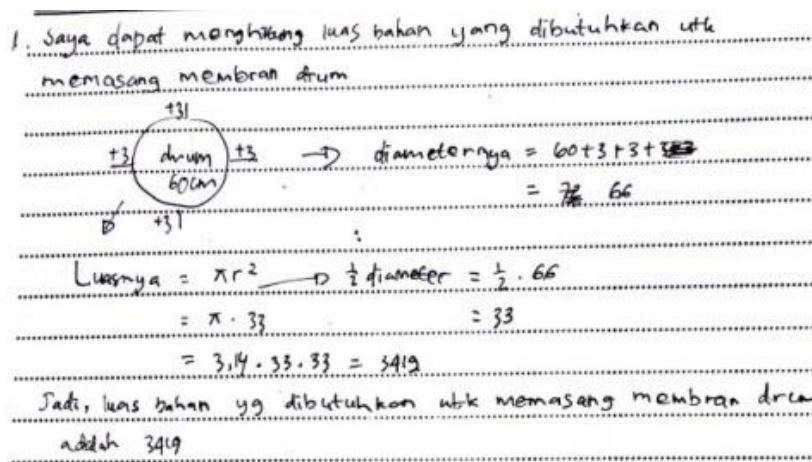 1. Saya dapat menghitung luas bahan yang dibutuhkan utk
memasang membran drum
+3
+3 drum +3 → diameternya = 60+3+3+
60cm
= 66
+3
:
Luasnya = πr² → ½ diameter = ½ . 66
= π . 33 = 33
= 3,14 . 33 . 33 = 3419
Jadi, luas bahan yg dibutuhkan utk memasang membran drum
adalah 3419